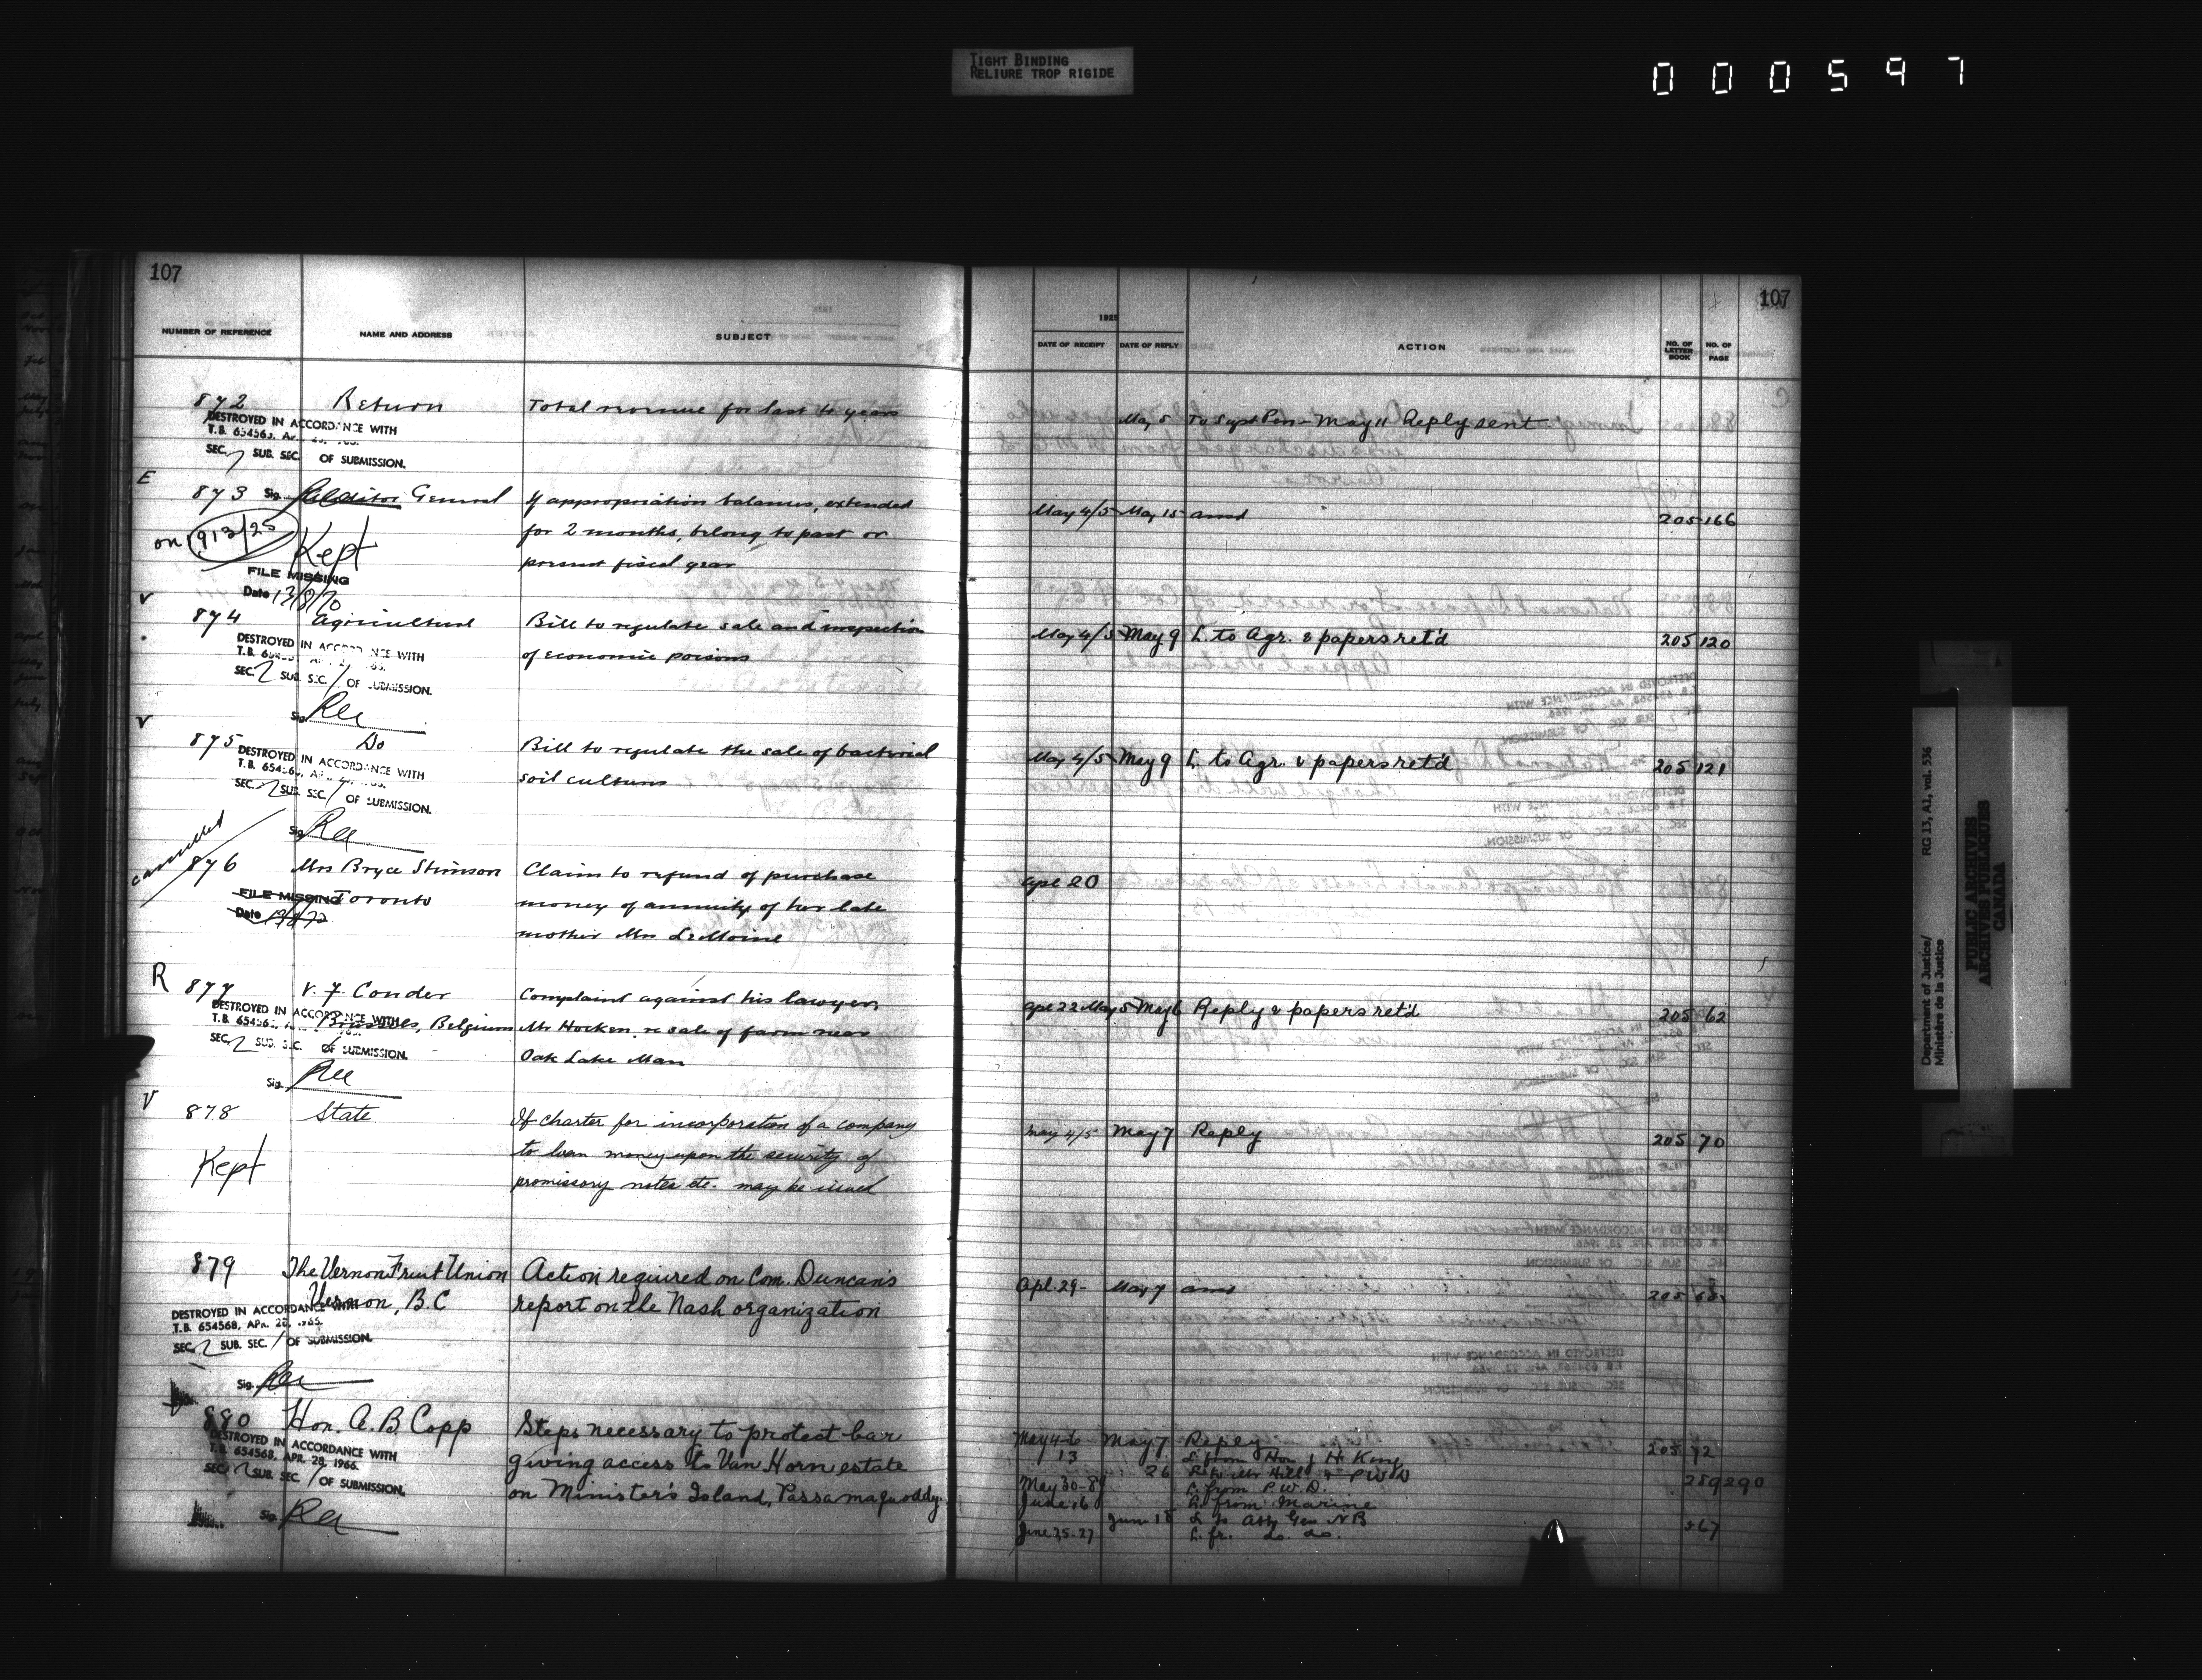 TIGHT BINDING
RELIURE TROP RIGIDE
000597
107
NUMBER OF REFERENCE NAME AND ADDRESS SUBJECT
872 Return Total revenue for last 4 years
DESTROYED IN ACCORDANCE WITH
T.B. 654568, APR. 28, 1966.
SEC. 7 SUB. SEC. OF SUBMISSION.
E
873 Sig. Auditor General If appropriation balances, extended
on 913/25 Kept for 2 months, belong to past or
present fiscal year
FILE MISSING
Date 13/8/70
V
874 Agriculture Bill to regulate sale and inspection
of economic poisons
DESTROYED IN ACCORDANCE WITH
T.B. 654568, APR. 28, 1966.
SEC. 2 SUB. SEC. / OF SUBMISSION.
Sig.
V
875 Do Bill to regulate the sale of bacterial
soil cultures
DESTROYED IN ACCORDANCE WITH
T.B. 654568, APR. 28, 1966.
SEC. 2 SUB. SEC. / OF SUBMISSION.
Sig.
cancelled
876 Mrs Bryce Stimson Claim to refund of purchase
FILE MISSING Toronto money of annuity of her late
Date 13/8/70
mother Mrs LeMoine
R
877 V. F. Conder Complaint against his lawyer,
Brussels, Belgium Mr Hocken, re sale of farm near
Oak Lake Man
DESTROYED IN ACCORDANCE WITH
T.B. 654568, APR. 28, 1966.
SEC. 2 SUB. SEC. / OF SUBMISSION.
Sig.
V
878 State If charter for incorporation of a company
Kept to loan money upon the security of
promissory notes etc. may be issued
879 The Vernon Fruit Union Action required on Com. Duncan's
Vernon, B.C report on the Nash organization
DESTROYED IN ACCORDANCE WITH
T.B. 654568, APR. 28, 1966.
SEC. 2 SUB. SEC. / OF SUBMISSION.
Sig.
880 Hon. A. B. Copp Steps necessary to protect bar
giving access to Van Horn estate
on Minister's Island, Passamaquoddy
DESTROYED IN ACCORDANCE WITH
T.B. 654568, APR. 28, 1966.
SEC. 2 SUB. SEC. / OF SUBMISSION.
Sig.
107
1925
DATE OF RECEIPT DATE OF REPLY ACTION NO. OF LETTER BOOK NO. OF PAGE
May 5 To Supt Pen - May 11 Reply sent
May 4/5 May 15 ansd 205 166
May 4/5 May 9 L. to Agr. & papers ret'd 205 120
May 4/5 May 9 L. to Agr. & papers ret'd 205 121
Apl 20
Apl 22 May 5 May 6 Reply & papers ret'd 205 62
May 4/5 May 7 Reply 205 70
Apl. 29- May 7 ansd 205 68
May 4-6 May 7 Reply 205 72
13 L. from Hon J H King
26 L. to Mr Hill & P W D 259 290
May 30-8 L. from P.W.D.
June 16 L. from Marine
June 18 L to Atty Gen N B 567
June 25-27 L. fr. do. do.
Department of Justice/ RG 13, A1, vol. 536
Ministère de la Justice
PUBLIC ARCHIVES
ARCHIVES PUBLIQUES
CANADA